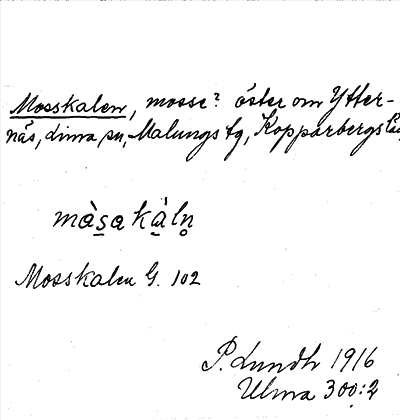 Mosskalen, mosse? öster om Ytter-
näs, Lima sn, Malungs tg, Kopparbergs län
màsakáln
Mosskalen G. 102
P. Lundh 1916
Ulma 300:2